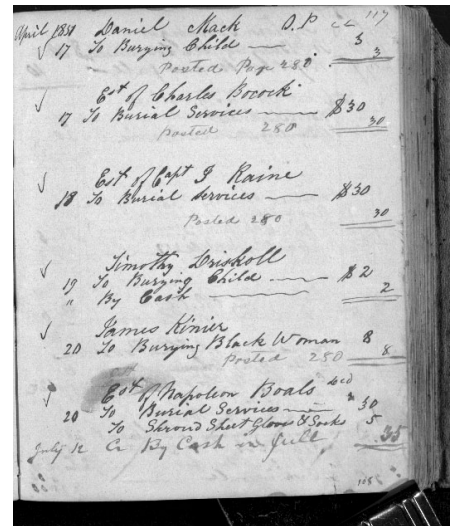 117
April 1851 Daniel Mack O.P
17 To Burying Child 3
3
Posted Page 280
Est of Charles Bocock
17 To Burial Services $30
30
posted 280
Est of Capt J Raine
18 To Burial Services $30
30
Posted 280
Timothy Driskoll
19 To Burying Child $2
" By Cash 2
James Kinier
20 To Burying Black Woman 8
8
Posted 280
Est of Napoleon Boals decd
20 To Burial Services " 30
To Shroud Sheet Gloves & Socks 5
35
July 12 Cr By Cash in full